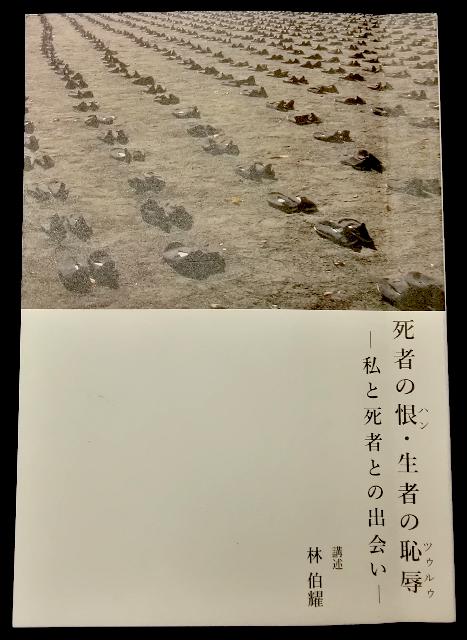 死者の恨・生者の恥辱
ハン
ツゥルウ
―私と死者との出会い―
講述
林 伯耀